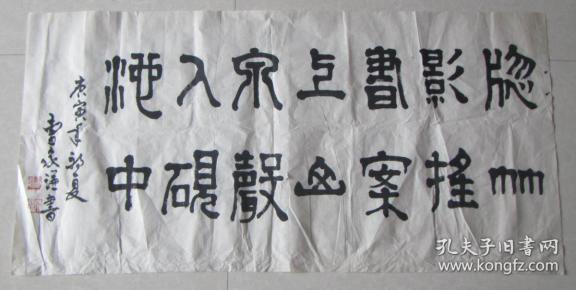 牕竹
影搖
書案
上山
泉聲
入硯
池中
庚寅年初夏
曹書
孔夫子旧书网
www.kongfz.com